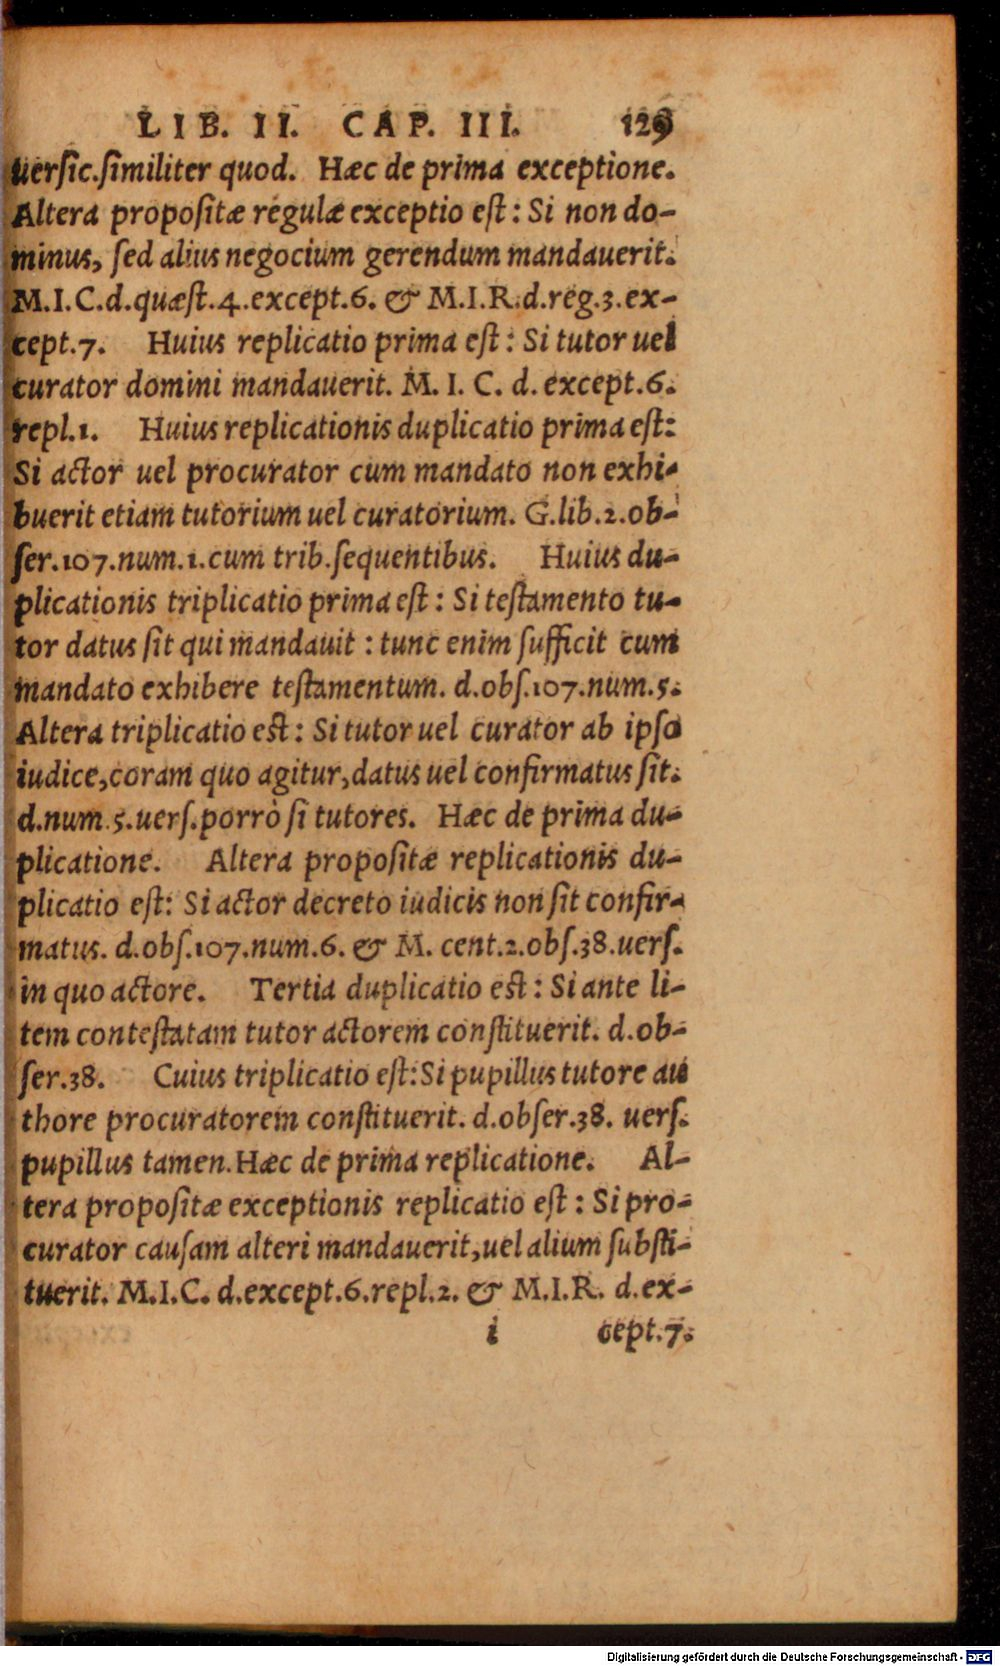 LIB. II. CAP. III. 129
uersic.similiter quod. Hæc de prima exceptione.
Altera propositæ regulæ exceptio est: Si non do-
minus, sed alius negocium gerendum mandauerit.
M.I.C.d.quæst.4.except.6. & M.I.R.d.reg.3.ex-
cept.7. Huius replicatio prima est: Si tutor uel
curator domini mandauerit. M. I. C. d. except.6.
repl.1. Huius replicationis duplicatio prima est:
Si actor uel procurator cum mandato non exhi-
buerit etiam tutorium uel curatorium. G.lib.2.ob-
ser.107.num.1.cum trib.sequentibus. Huius du-
plicationis triplicatio prima est: Si testamento tu-
tor datus sit qui mandauit: tunc enim sufficit cum
mandato exhibere testamentum. d.obs.107.num.5.
Altera triplicatio est: Si tutor uel curator ab ipso
iudice,coram quo agitur,datus uel confirmatus sit.
d.num.5.uers.porrò si tutores. Hæc de prima du-
plicatione. Altera propositæ replicationis du-
plicatio est: Si actor decreto iudicis non sit confir-
matus. d.obs.107.num.6. & M. cent.2.obs.38.uers.
in quo actore. Tertia duplicatio est: Si ante li-
tem contestatam tutor actorem constituerit. d.ob-
ser.38. Cuius triplicatio est:Si pupillus tutore au
thore procuratorem constituerit. d.obser.38. uers.
pupillus tamen.Hæc de prima replicatione. Al-
tera propositæ exceptionis replicatio est: Si pro-
curator causam alteri mandauerit,uel alium substi-
tuerit. M.I.C. d.except.6.repl.2. & M.I.R. d.ex-
i cept.7.
Digitalisierung gefördert durch die Deutsche Forschungsgemeinschaft - DFG